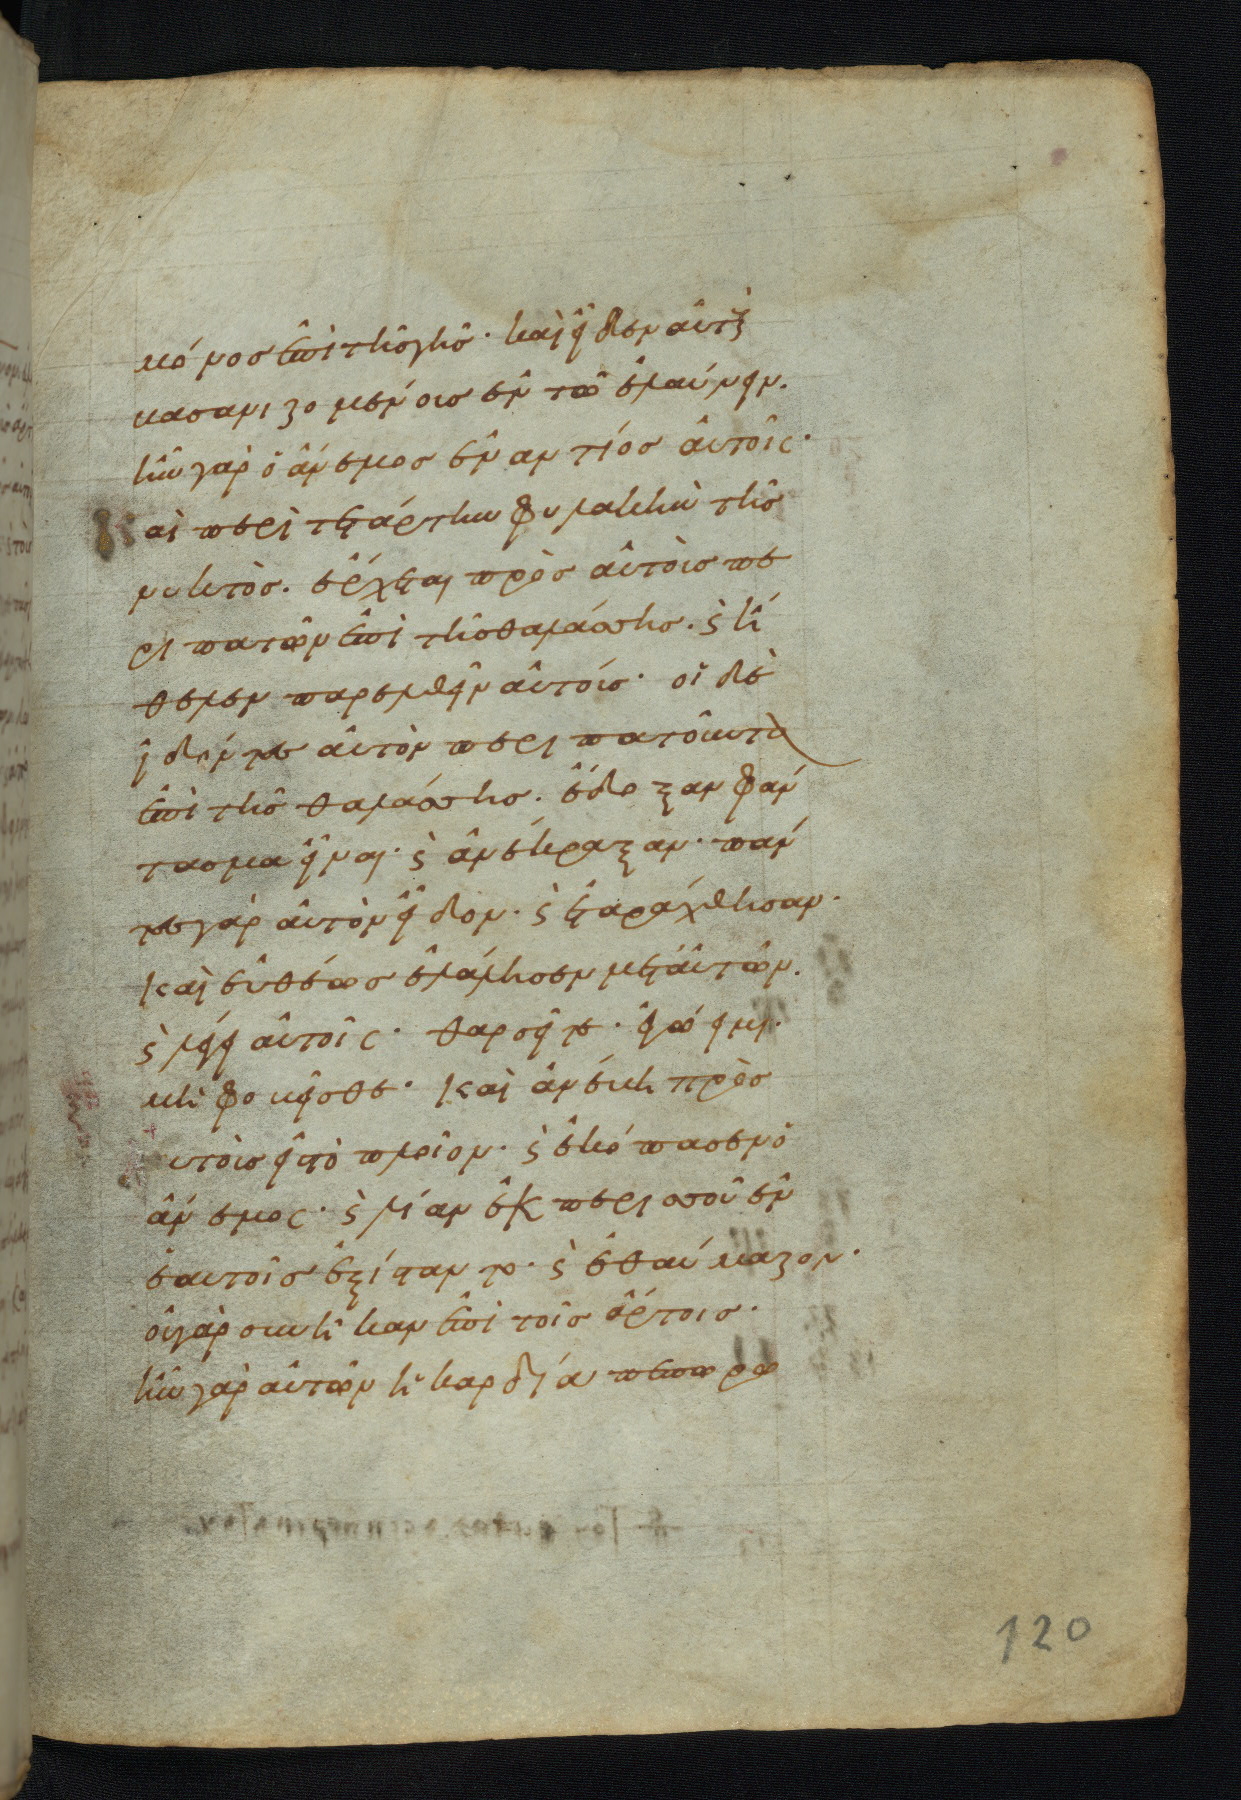 μόνος ἐπὶ τῆς γῆς· καὶ εἶδεν αὐτοὺς
βασανιζομένοις ἐν τῶ ἐλαύνειν.
ἦν γὰρ ὁ ἄνεμος ἐναντίος αὐτοῖς·
αι περὶ τετάρτην φυλακὴν τῆς
νυκτὸς. ἔρχεται πρὸς αὐτοὺς πε
ριπατῶν ἐπὶ τῆς θαλάσσης. ϗ ἤ
θελεν παρελθεῖν αὐτούς· οἱ δὲ
ἰδόντες αὐτὸν περιπατοῦντα
ἐπὶ τῆς θαλάσσης. ἔδοξαν φάν
τασμα εἶναι· ϗ ἀνέκραξαν· πάν
τες γὰρ αὐτὸν εἶδον. ϗ ἐταράχθησαν.
καὶ εὐθέως ἐλάλησεν μετ' αὐτῶν.
ϗ λέγει αὐτοῖς· θαρσεῖτε· ἐγώ εἰμι.
μὴ φοβεῖσθε· καὶ ἀνέβη πρὸς
υτοὺς εἰς τὸ πλοῖον· ϗ ἐκόπασεν ὁ
ἄνεμος· ϗ λίαν ἐκ περισσοῦ ἐν
ἑαυτοῖς ἐξίσταντο· ϗ ἐθαύμαζον·
οὐ γὰρ συνῆκαν ἐπὶ τοῖς ἄρτοις·
ἦν γὰρ αὐτῶν ἡ καρδία πεπωρω
120